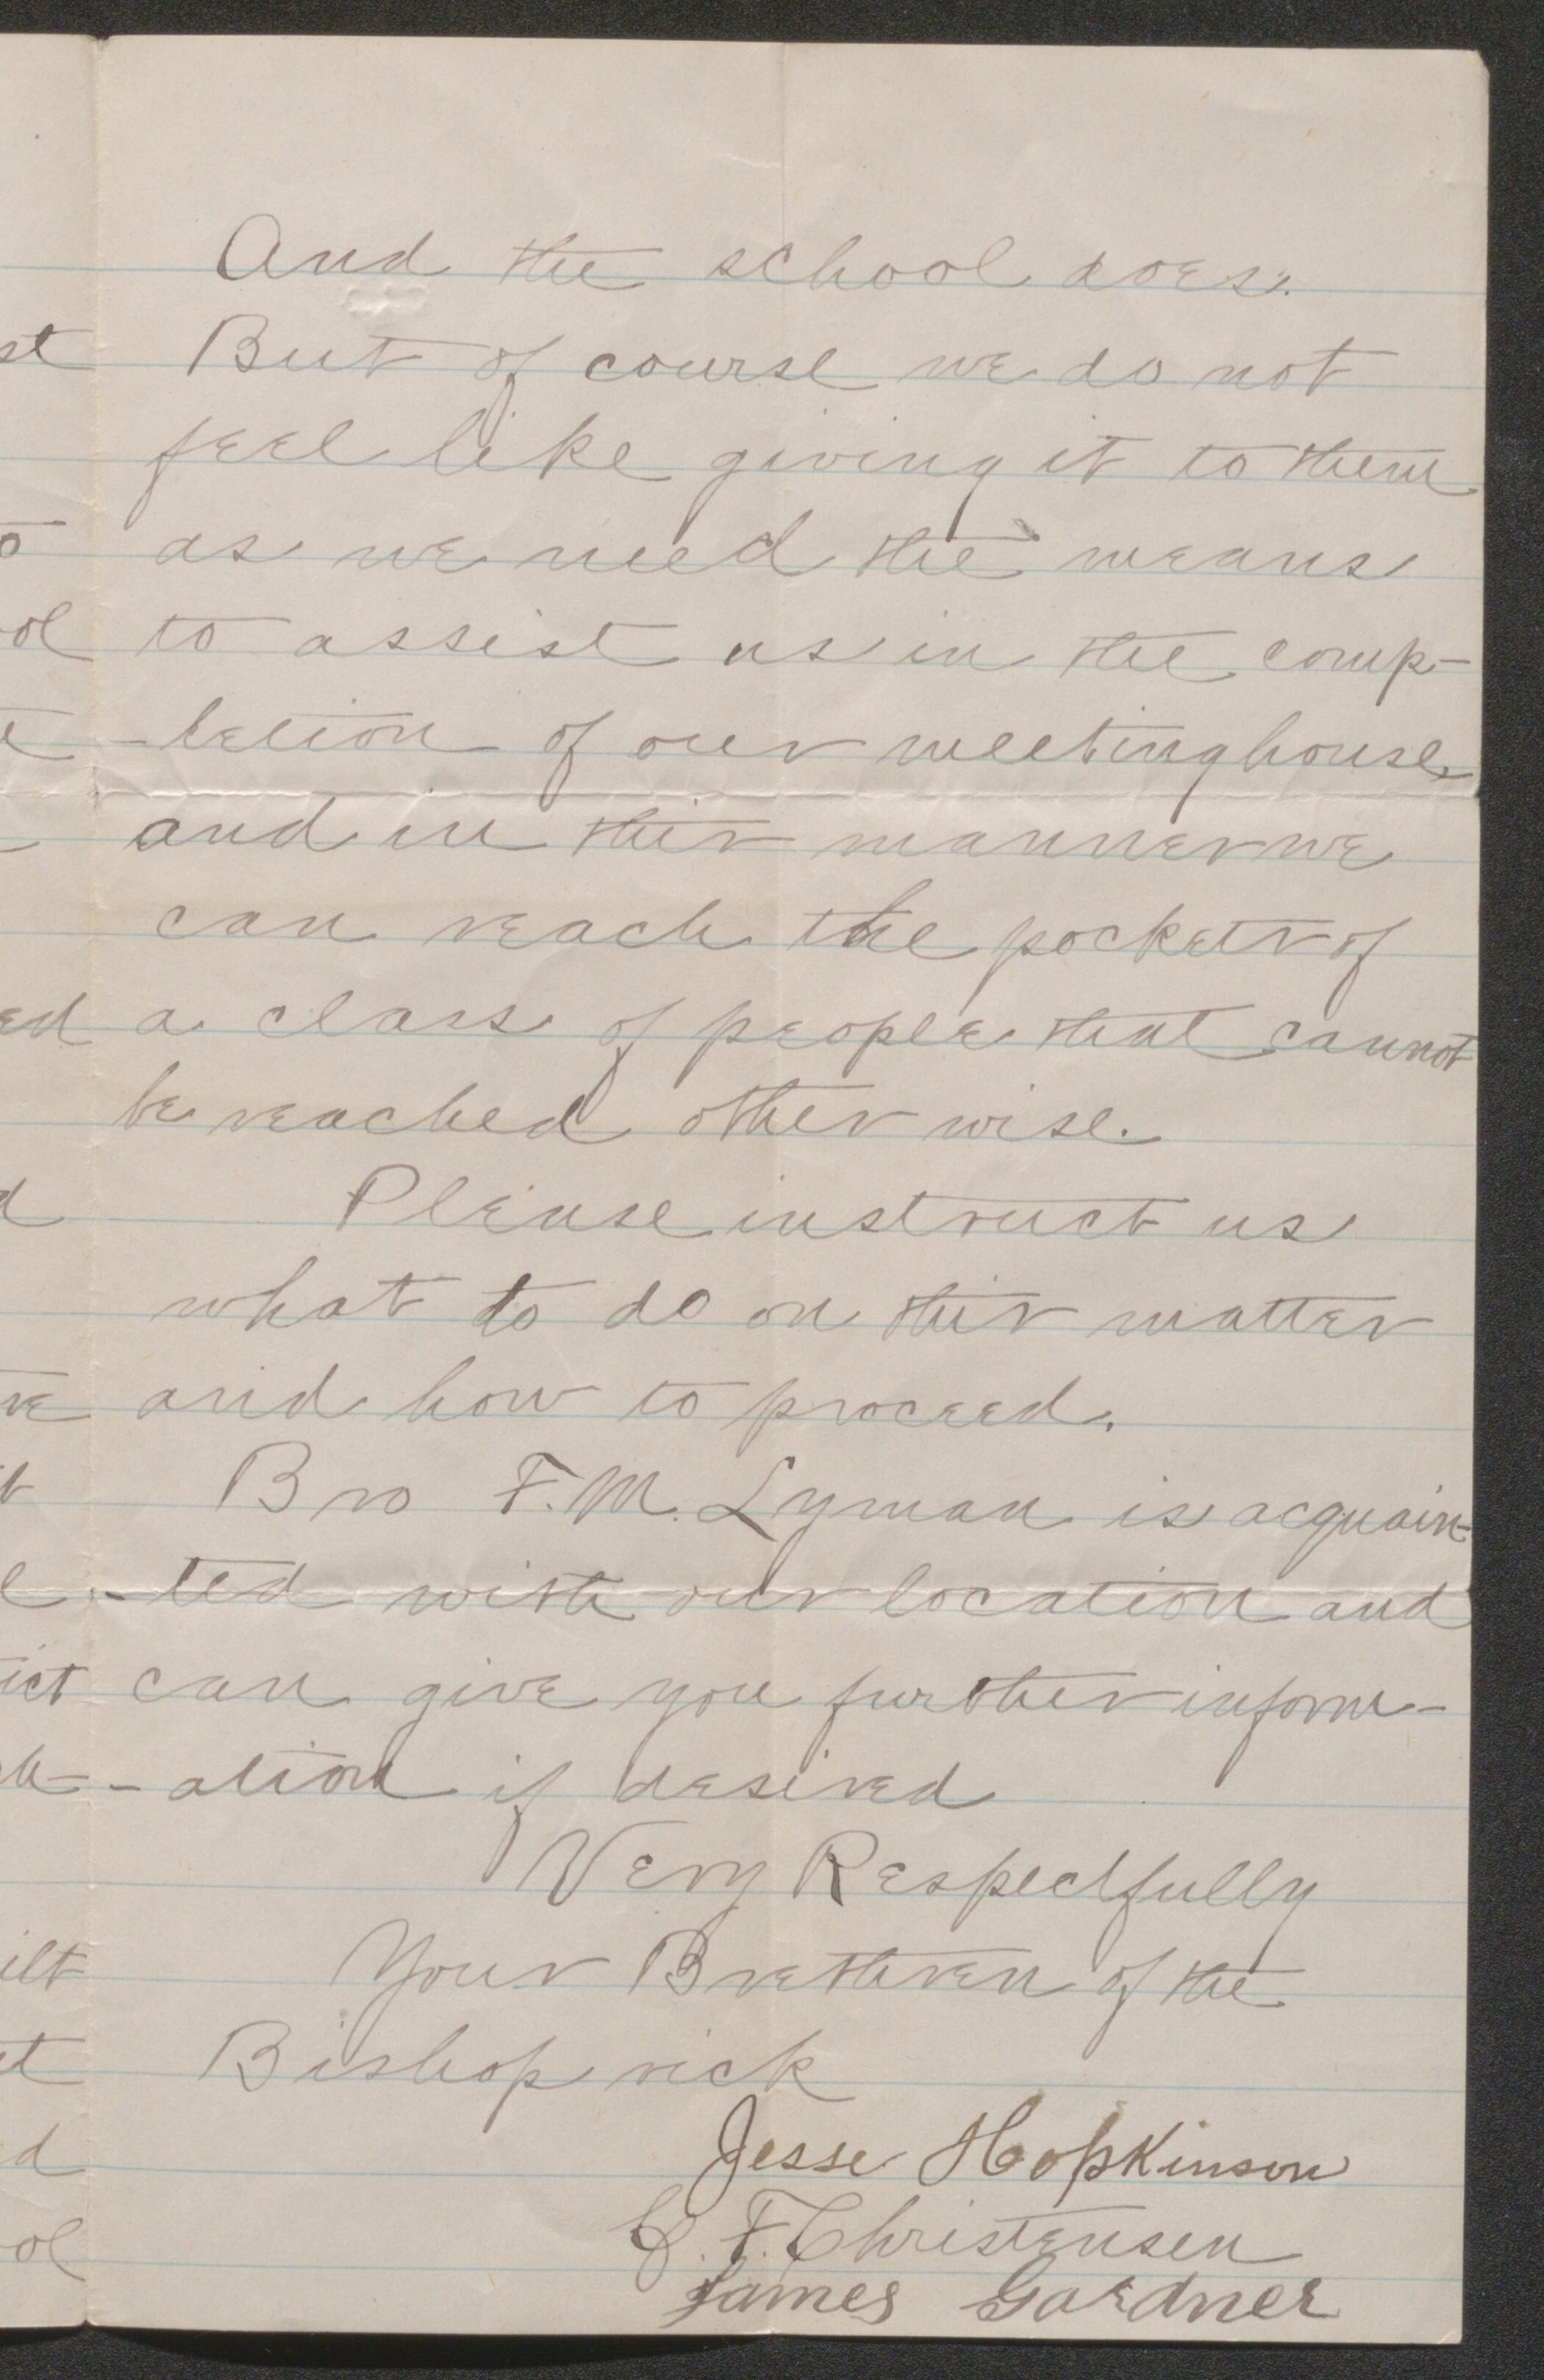 And the school does.
But of course we do not
feel like giving it to them
as we need the means
to assist us in the comp-
-letion of our meetinghouse
and in this manner we
can reach the pockets of
a class of people that cannot
be reached other wise.
Please instruct us
what to do on this matter
and how to proceed.
Bro F. M. Lyman is acquain-
-ted with our location and
can give you further inform-
-ation if desired
Very Respectfully
Your Brethren of the
Bishop rick
Jesse Hopkinson
F. Christensen
James Gardner